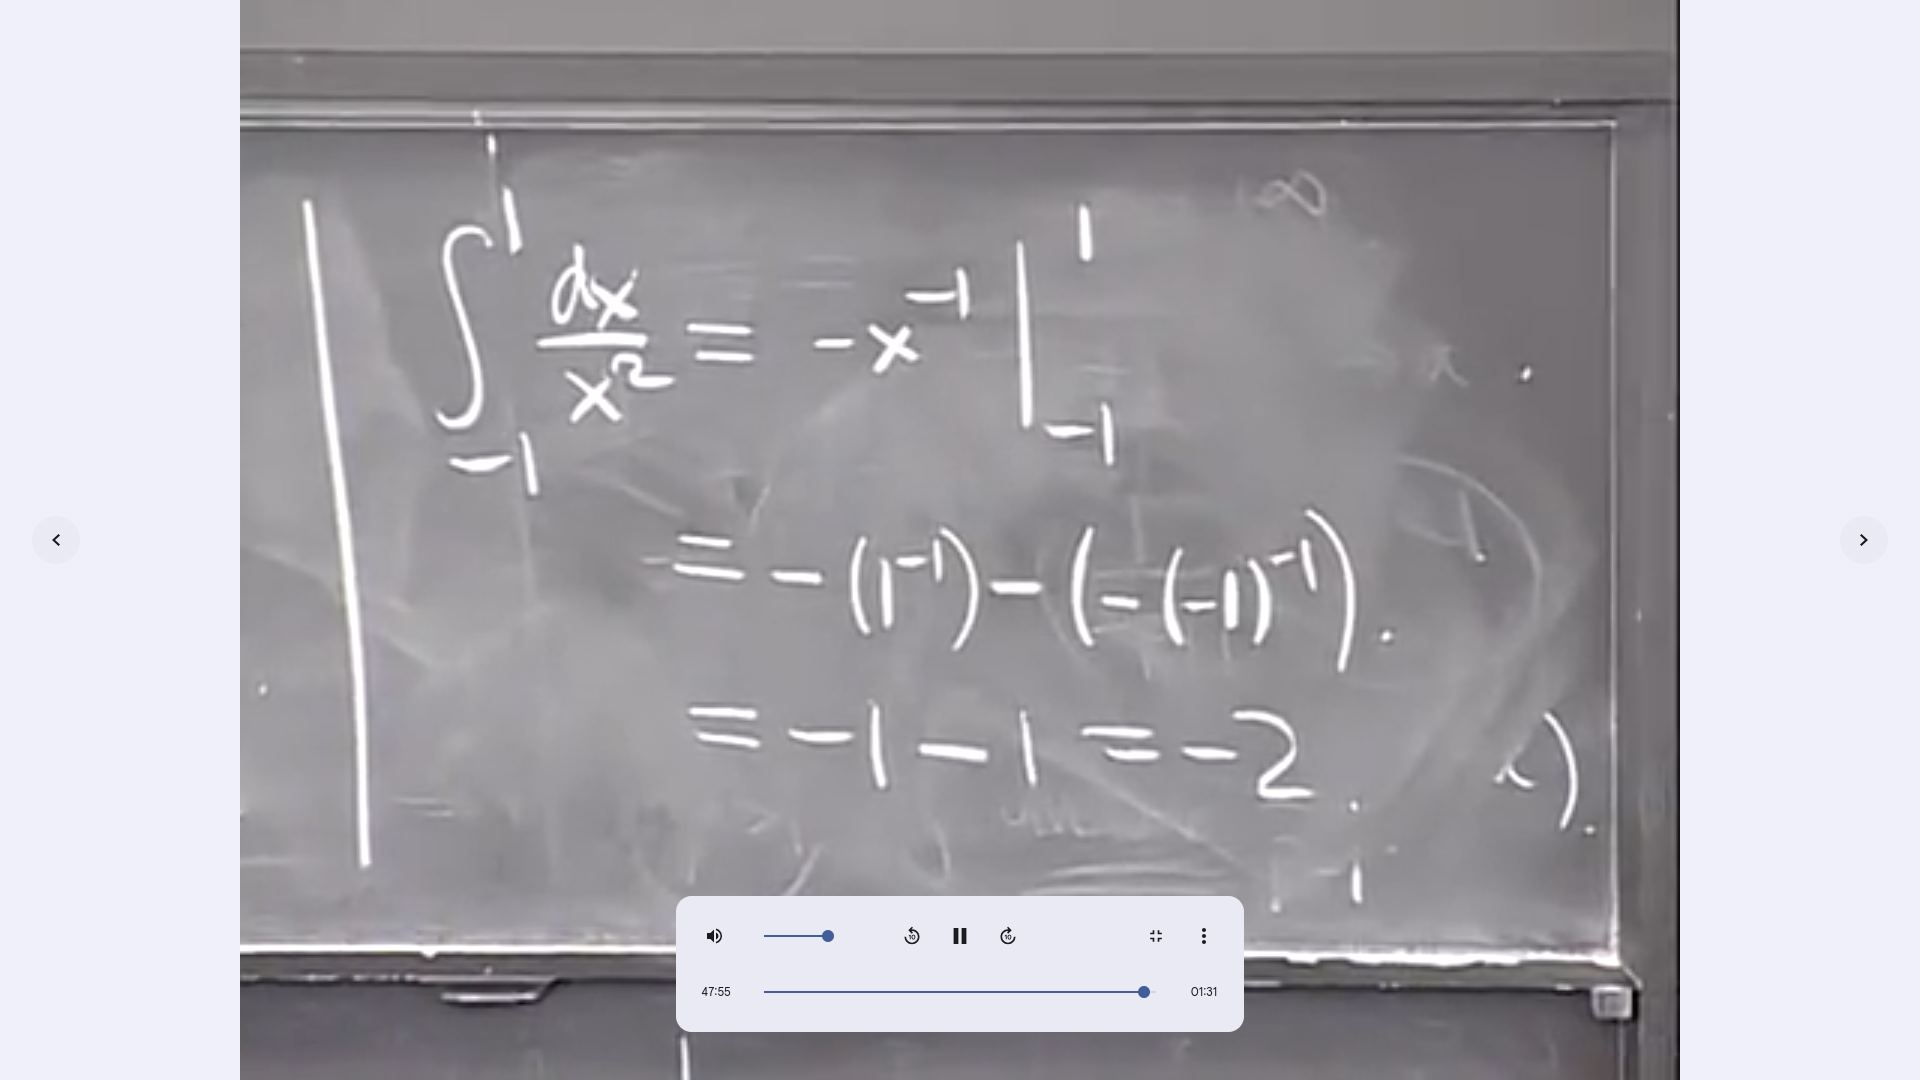 ∫₋₁¹ dx/x² = -x⁻¹ |₋₁¹
= -(1⁻¹) - (-(-1)⁻¹).
= -1 - 1 = -2.
∞
10
10
47:55
01:31